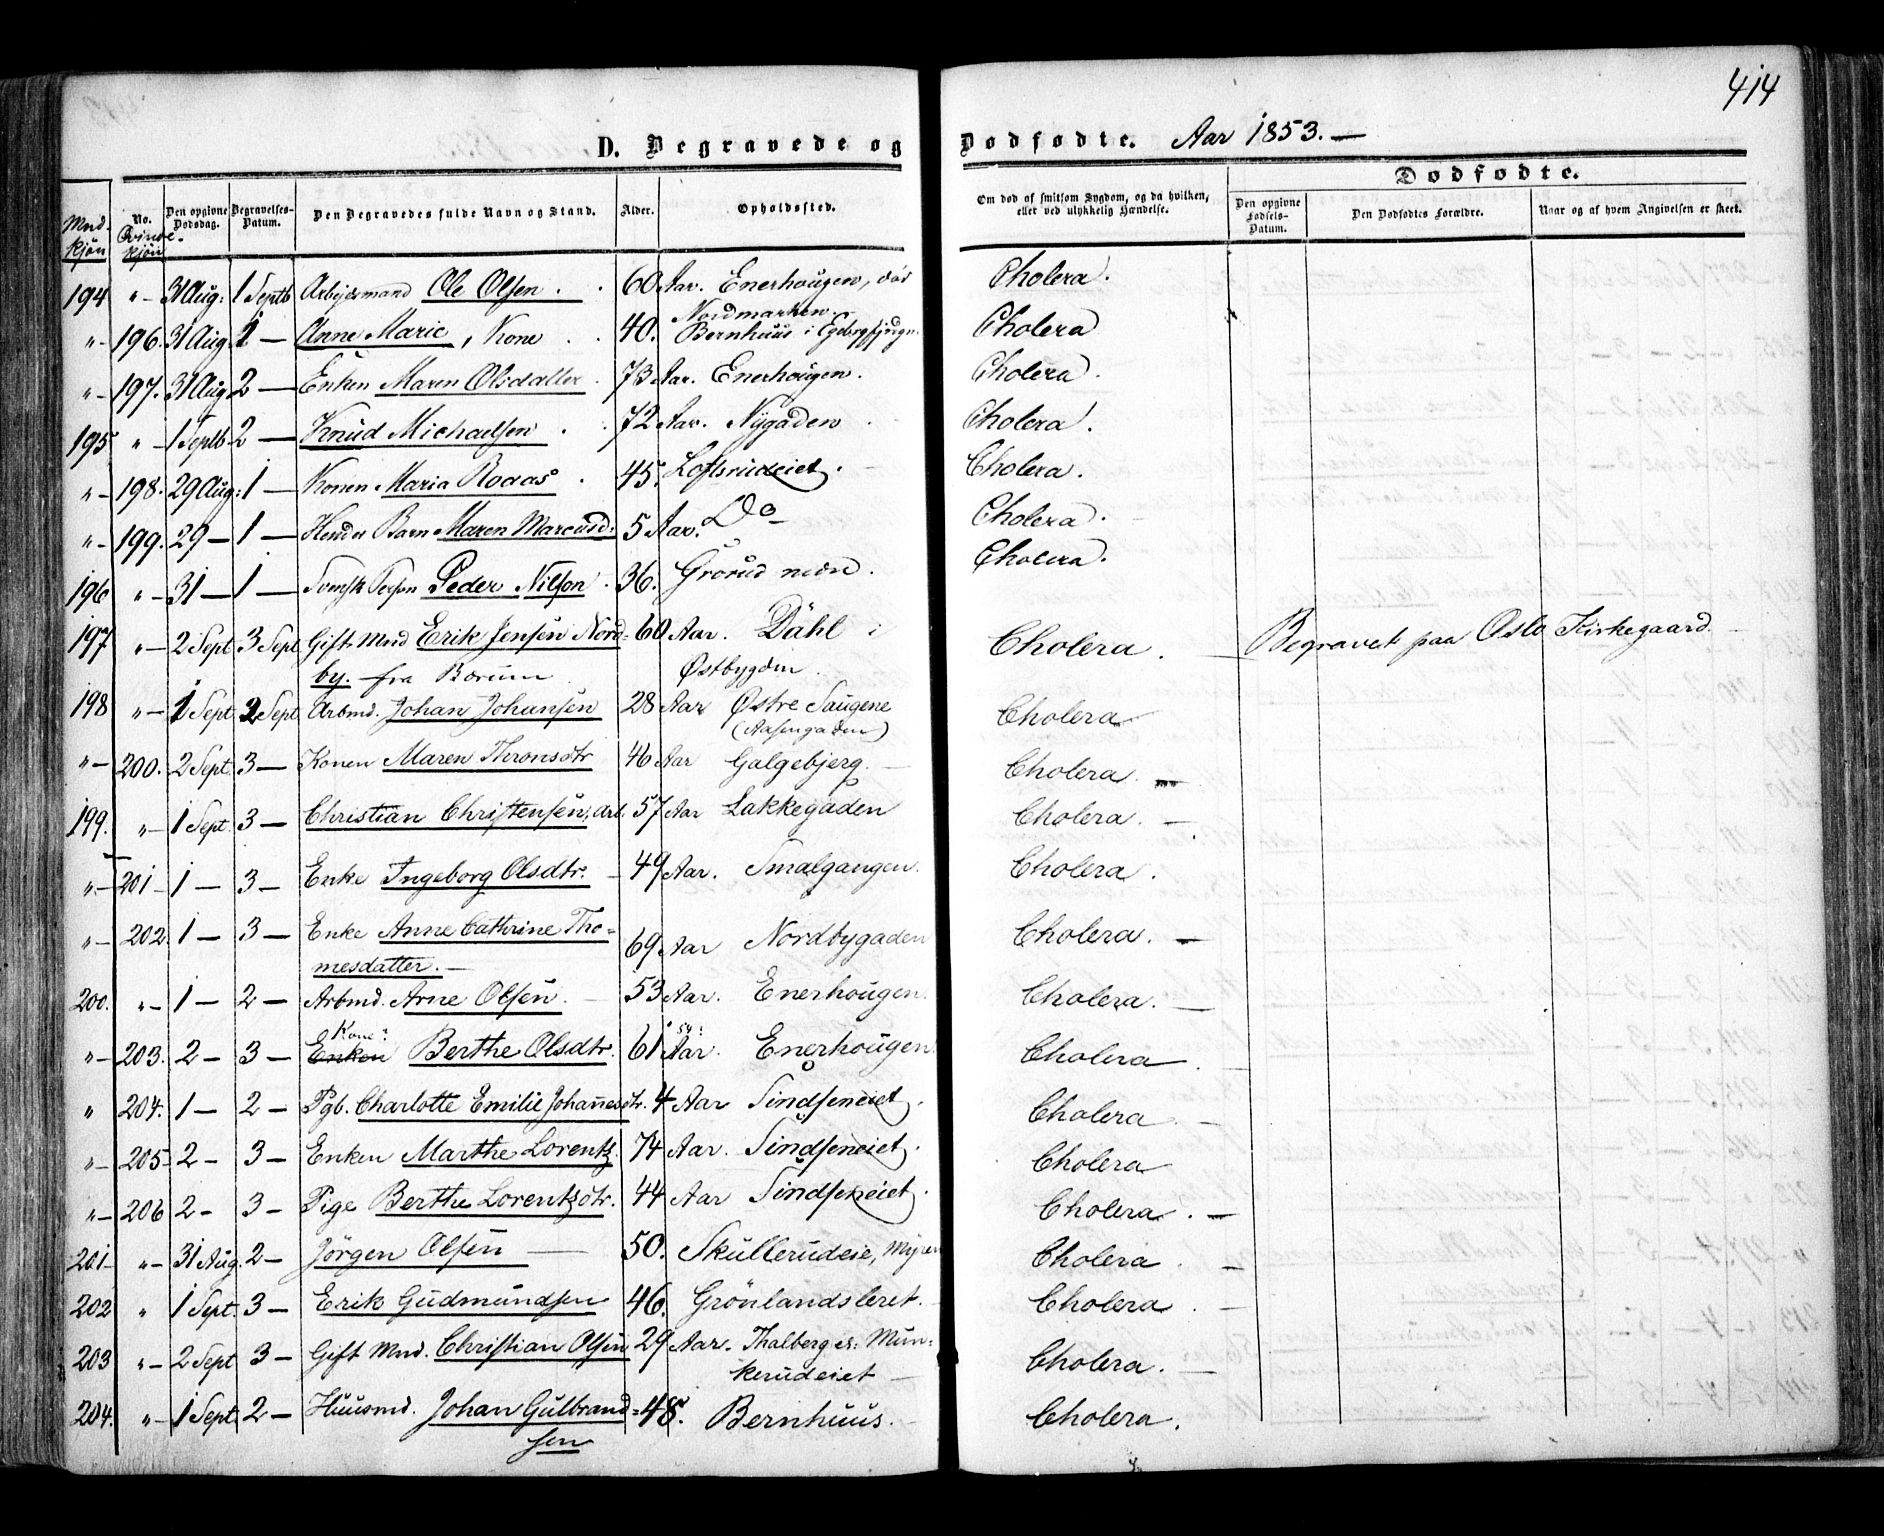 414
D. Begravede og Dødfødte. Aar 1853. —
Dødfødte.
Mnd-kjøn
No. Qvinde-kjøn
Den opgivne Dødsdag.
Begravelses-Datum.
Den Begravedes fulde Navn og Stand.
Alder.
Opholdssted.
Om død af smitsom Sygdom, og da hvilken, eller ved ulykkelig Hændelse.
Den opgivne Fødsels-Datum.
Den Dødfødtes Forældre.
Naar og af hvem Angivelsen er skeet.
194 " — 31 Aug: 1 Septb Arbejdsmand Ole Olsen . . 60 Aar. Enerhougen, Cholera.
Nordmarken
" — 196. 31 Aug: 1 — Anne Marie, Kone . . 40. Bernhuus i Cholera
" — 197. 31 Aug 2 — Enken Maren Olsdatter . 73 Aar. Enerhougen. Cholera.
195 " — 1 Septb 2 — Knud Michaelsen . . 72 Aar. Nygaden Cholera.
" — 198. 29 Aug: 1 — Konen Maria Roaas . 45. Loftsrudeiet. Cholera.
" — 199. 29 — 1 — Hendes Barn Maren Marcusd: 5 Aar. Do Cholera.
196 " — 31 — 1 — Svensk Person Peder Nilson . 36. Grorud Cholera.
197 " — 2 Sept 3 Sept Gift Mnd Erik Jensen Nord= 60 Aar. Dahl i Cholera. — Begravet paa Oslo Kirkegaard. —
by. fra Bærum. Østbygden.
198 " — 1 Sept 2 Sept Arbmd. Johan Johansen 28 Aar Østre Saugene Cholera
(Aasengaden)
" — 200. 2 Sept. 3 — Konen Maren Thronsdtr 46 Aar Galgebjerg. — Cholera. —
199. " — 1 Sept. 3 — Christian Christensen, Arb. 57 Aar Lakkegaden Cholera. —
" — 201 — 1 — 3 — Enke Ingeborg Olsdtr. — 49 Aar. Smalgangen. Cholera.
" — 202 1 — 3 — Enke Anne Cathrine Tho= 69 Aar Nordbygaden Cholera. —
mesdatter. —
200. " — 1 — 2 — Arbmd. Arne Olsen. — 53 Aar. Enerhougen. Cholera. —
Kone: 59:
" — 203. 2 — 3 — Enken Berthe Olsdtr. 61 Aar. Enerhougen Cholera
" 204. 1 — 2 — Pgb. Charlotte Emilie Johannesdtr. 4 Aar Sindseneiet. Cholera. —
" — 205 — 2 — 3 — Enken Marthe Lorentz. 74 Aar. Sindseneiet. Cholera
" — 206 2 — 3 — Pige Berthe Lorentzdtr. 44 Aar Sindseneiet. Cholera. —
201 — " — 31 Aug. 2 — Jörgen Olsen — 50. Skullerudeie, Myren Cholera. —
202 " 1 Sept. 3 — Erik Gudmundsen 46. Grönlandsleret. — Cholera. —
203 " — 2 Sept 3 — Gift Mnd. Christian Olsen 29 Aar. Thalberg er. Mun= Cholera. —
kerudeiet —
204. " — 1 Sept. 2 — Huusmd. Johan Gulbrand= 48. Bernhuus. — Cholera.
sen